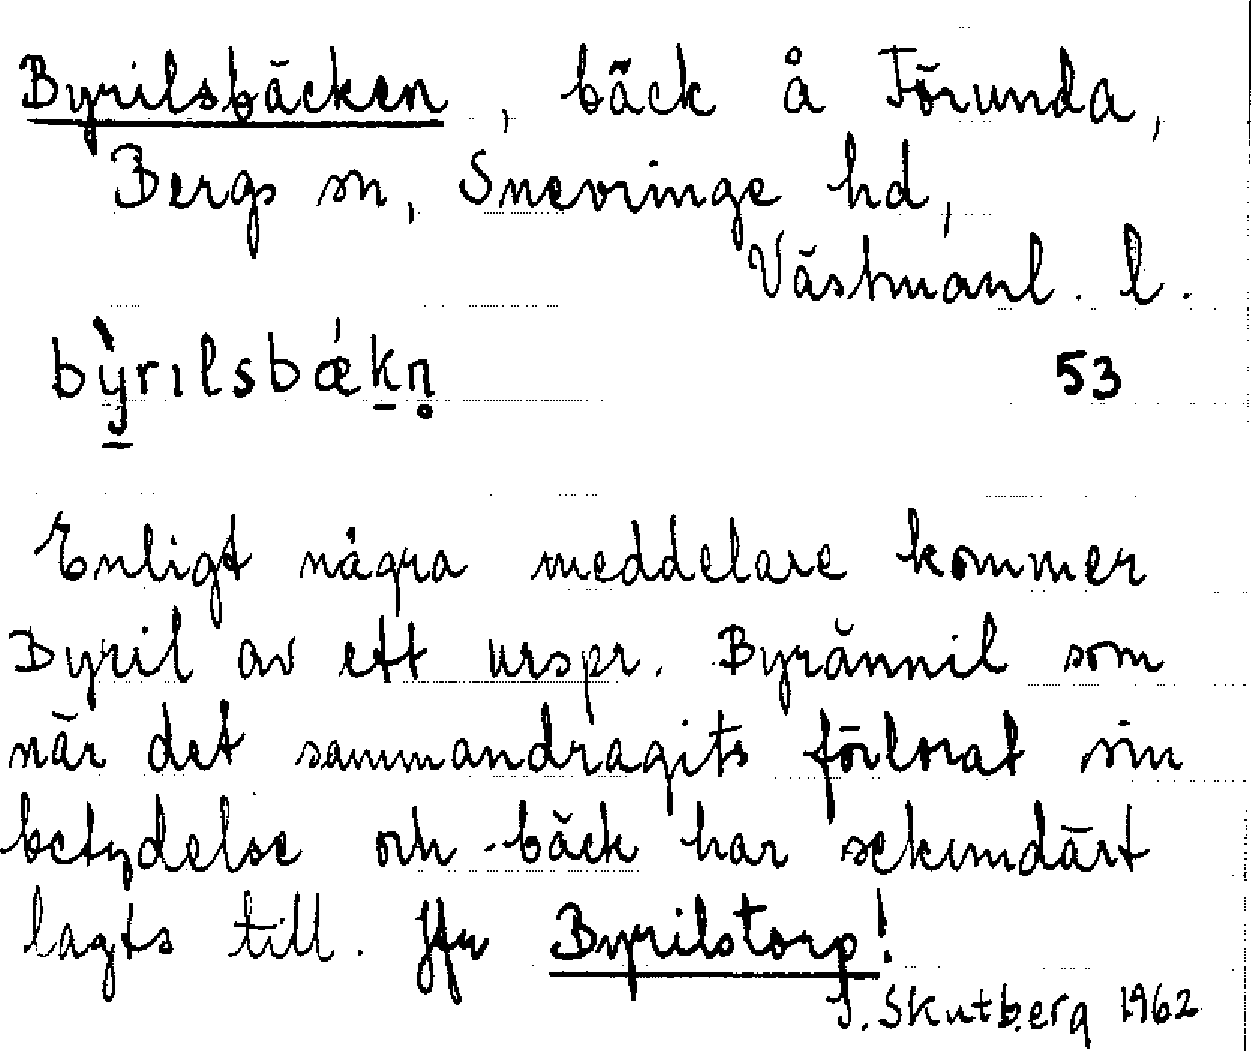 Byrilsbäcken, bäck å Förunda,
Bergs sn, Snevringe hd,
Västmanl. l.
bỳrılsbǽkn̥ 53
Enligt några meddelare kommer
Byril av ett urspr. Byrännil som
när det sammandragits förlorat sin
betydelse och -bäck har sekundärt
lagts till. Jfr Byrilstorp!
S. Skutberg 1962